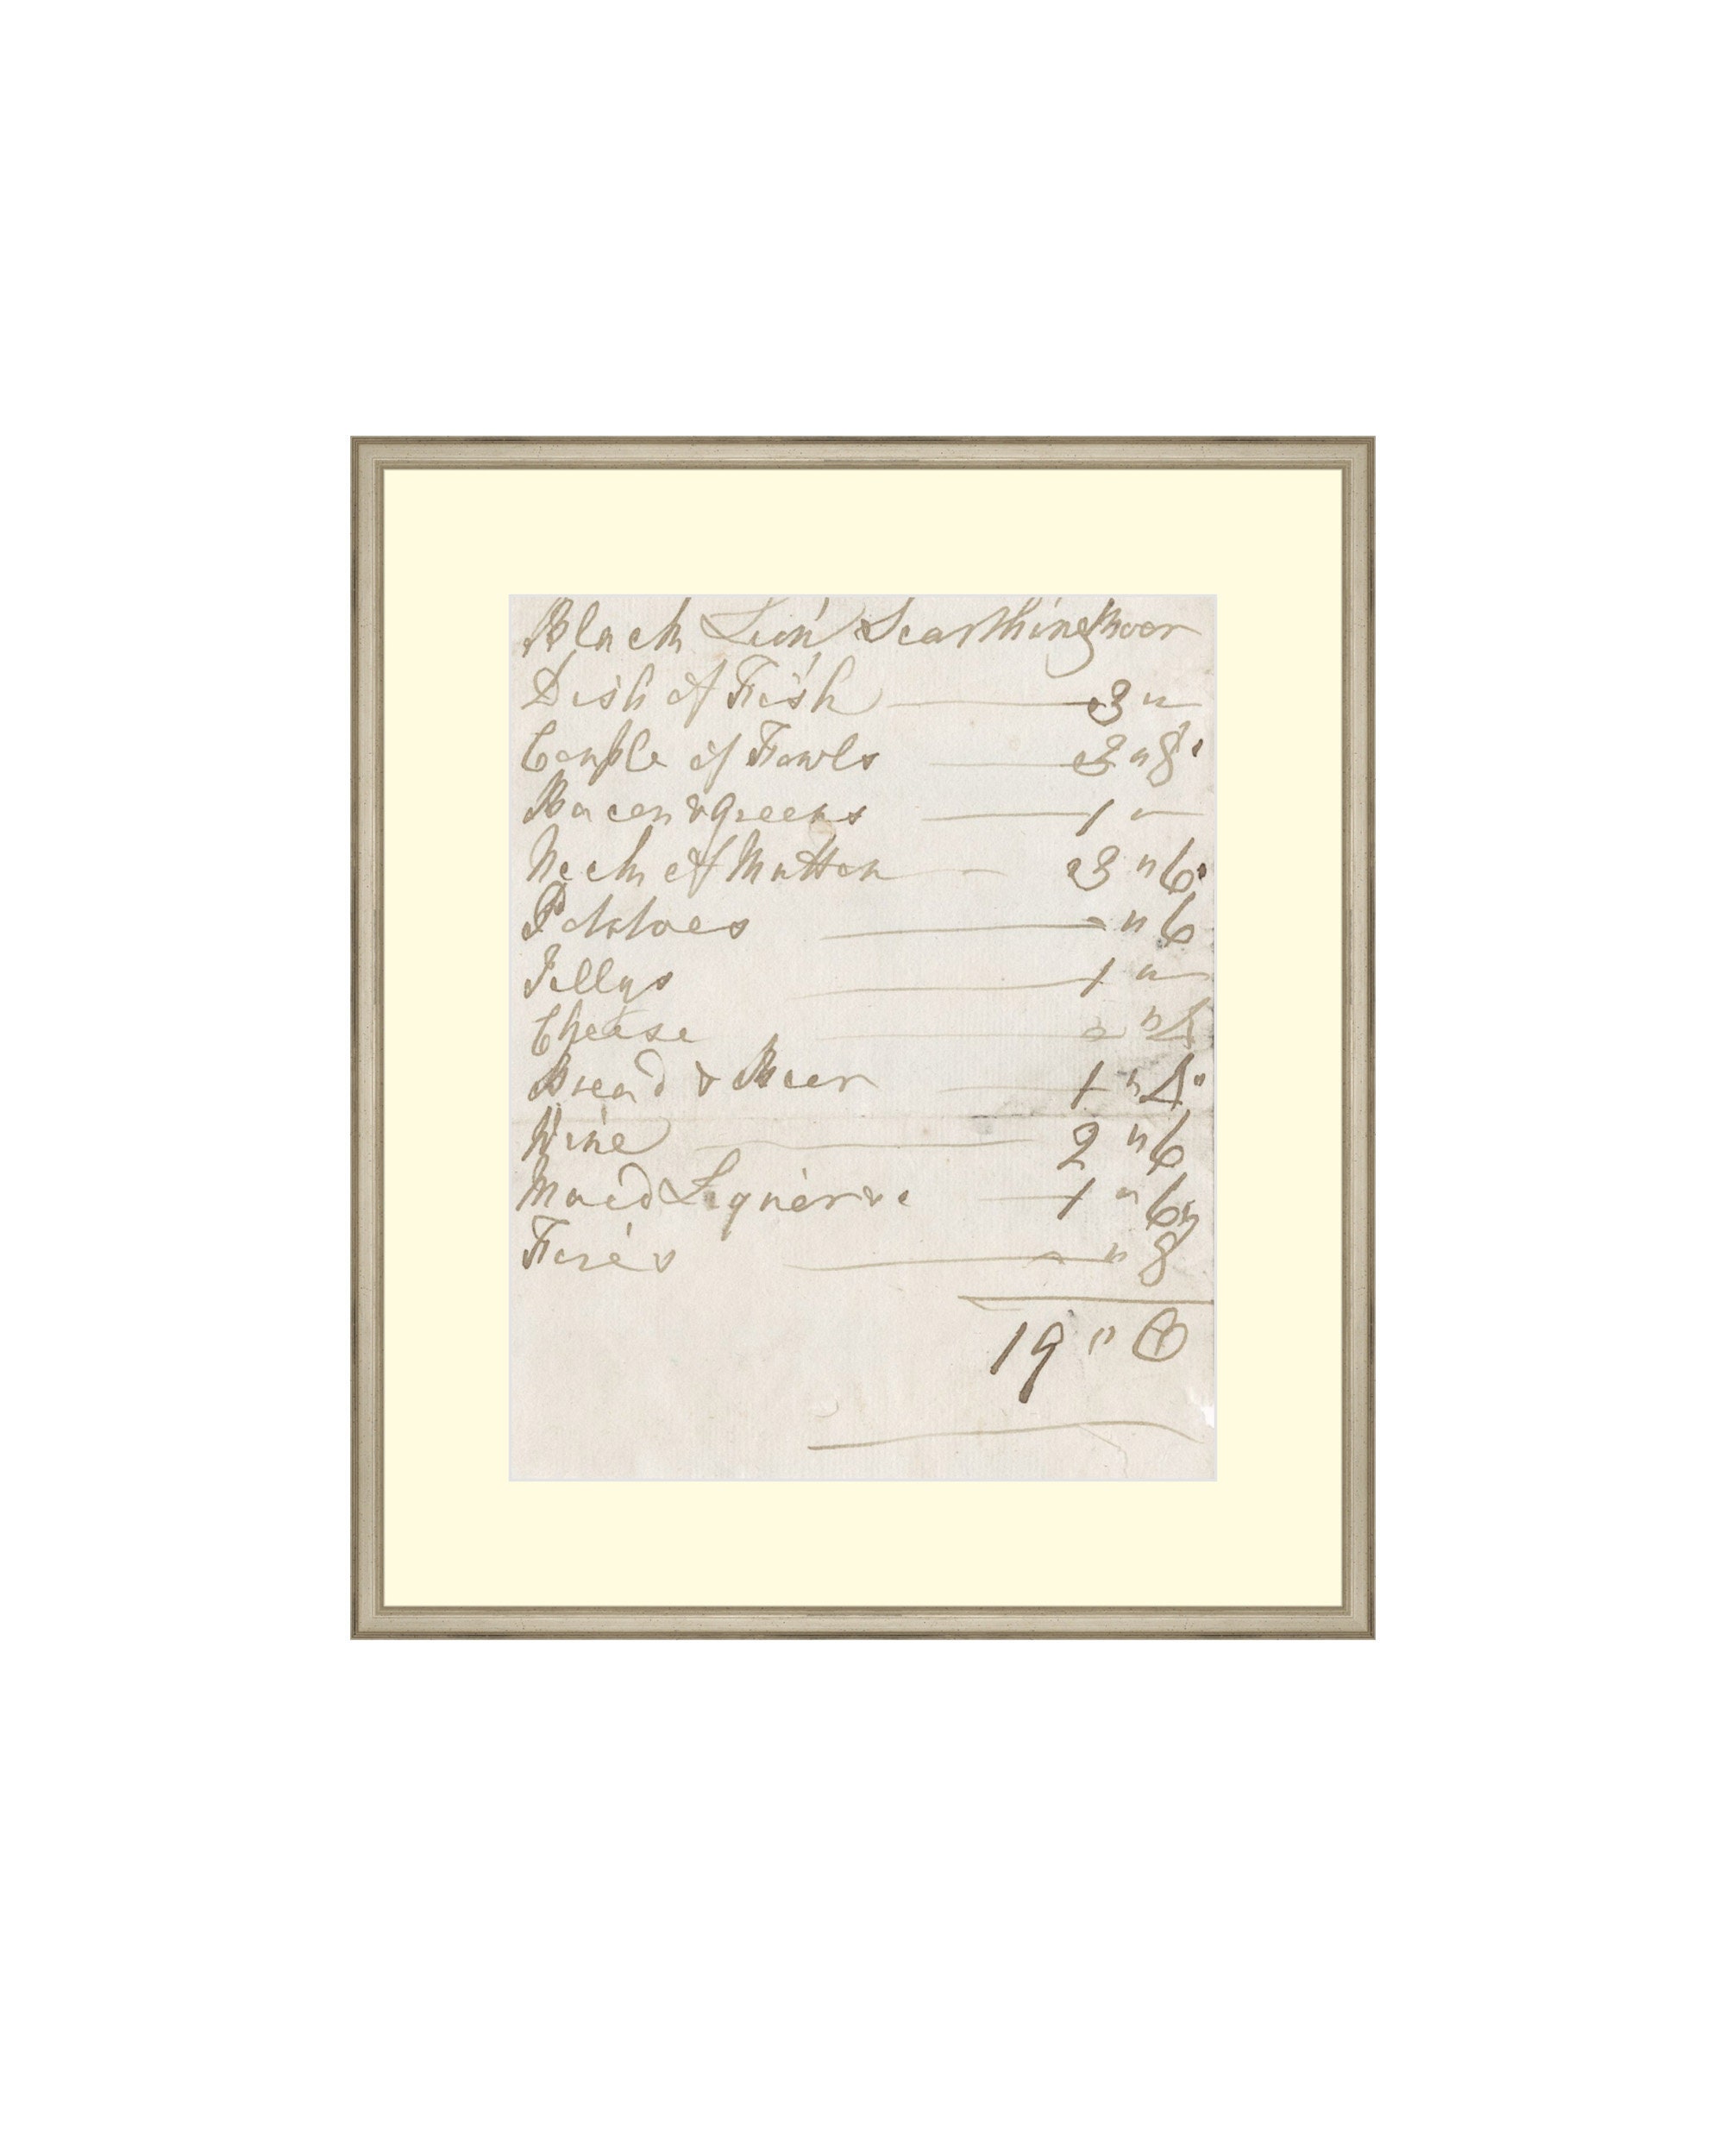 Black Lion Scarthing Moor
Dish of Fish — 3 "—
Couple of Fowls — 3 " 8
Bacon & Greens — 1 "—
Neck of Mutton — 3 " 6
Potatoes — " 6
Jellys — 1 "—
Cheese — " 4
Bread & Beer — 1 " 4
Wine — 2 " 6
Maid Liquer &c — 1 " 6
Fires — " 8
19 " 0